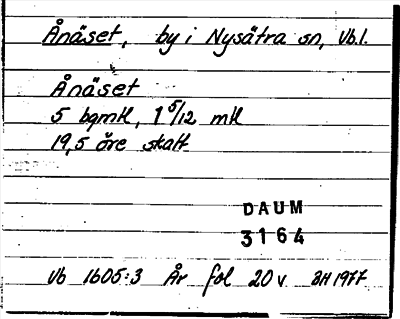 Ånäset, by i Nysätra sn, Vb.l.
Ånäset
5 bgmtl, 1 5/12 mtl
19,5 öre skatt
DAUM
3164
Vb 1605:3 År fol 20v BH 1977